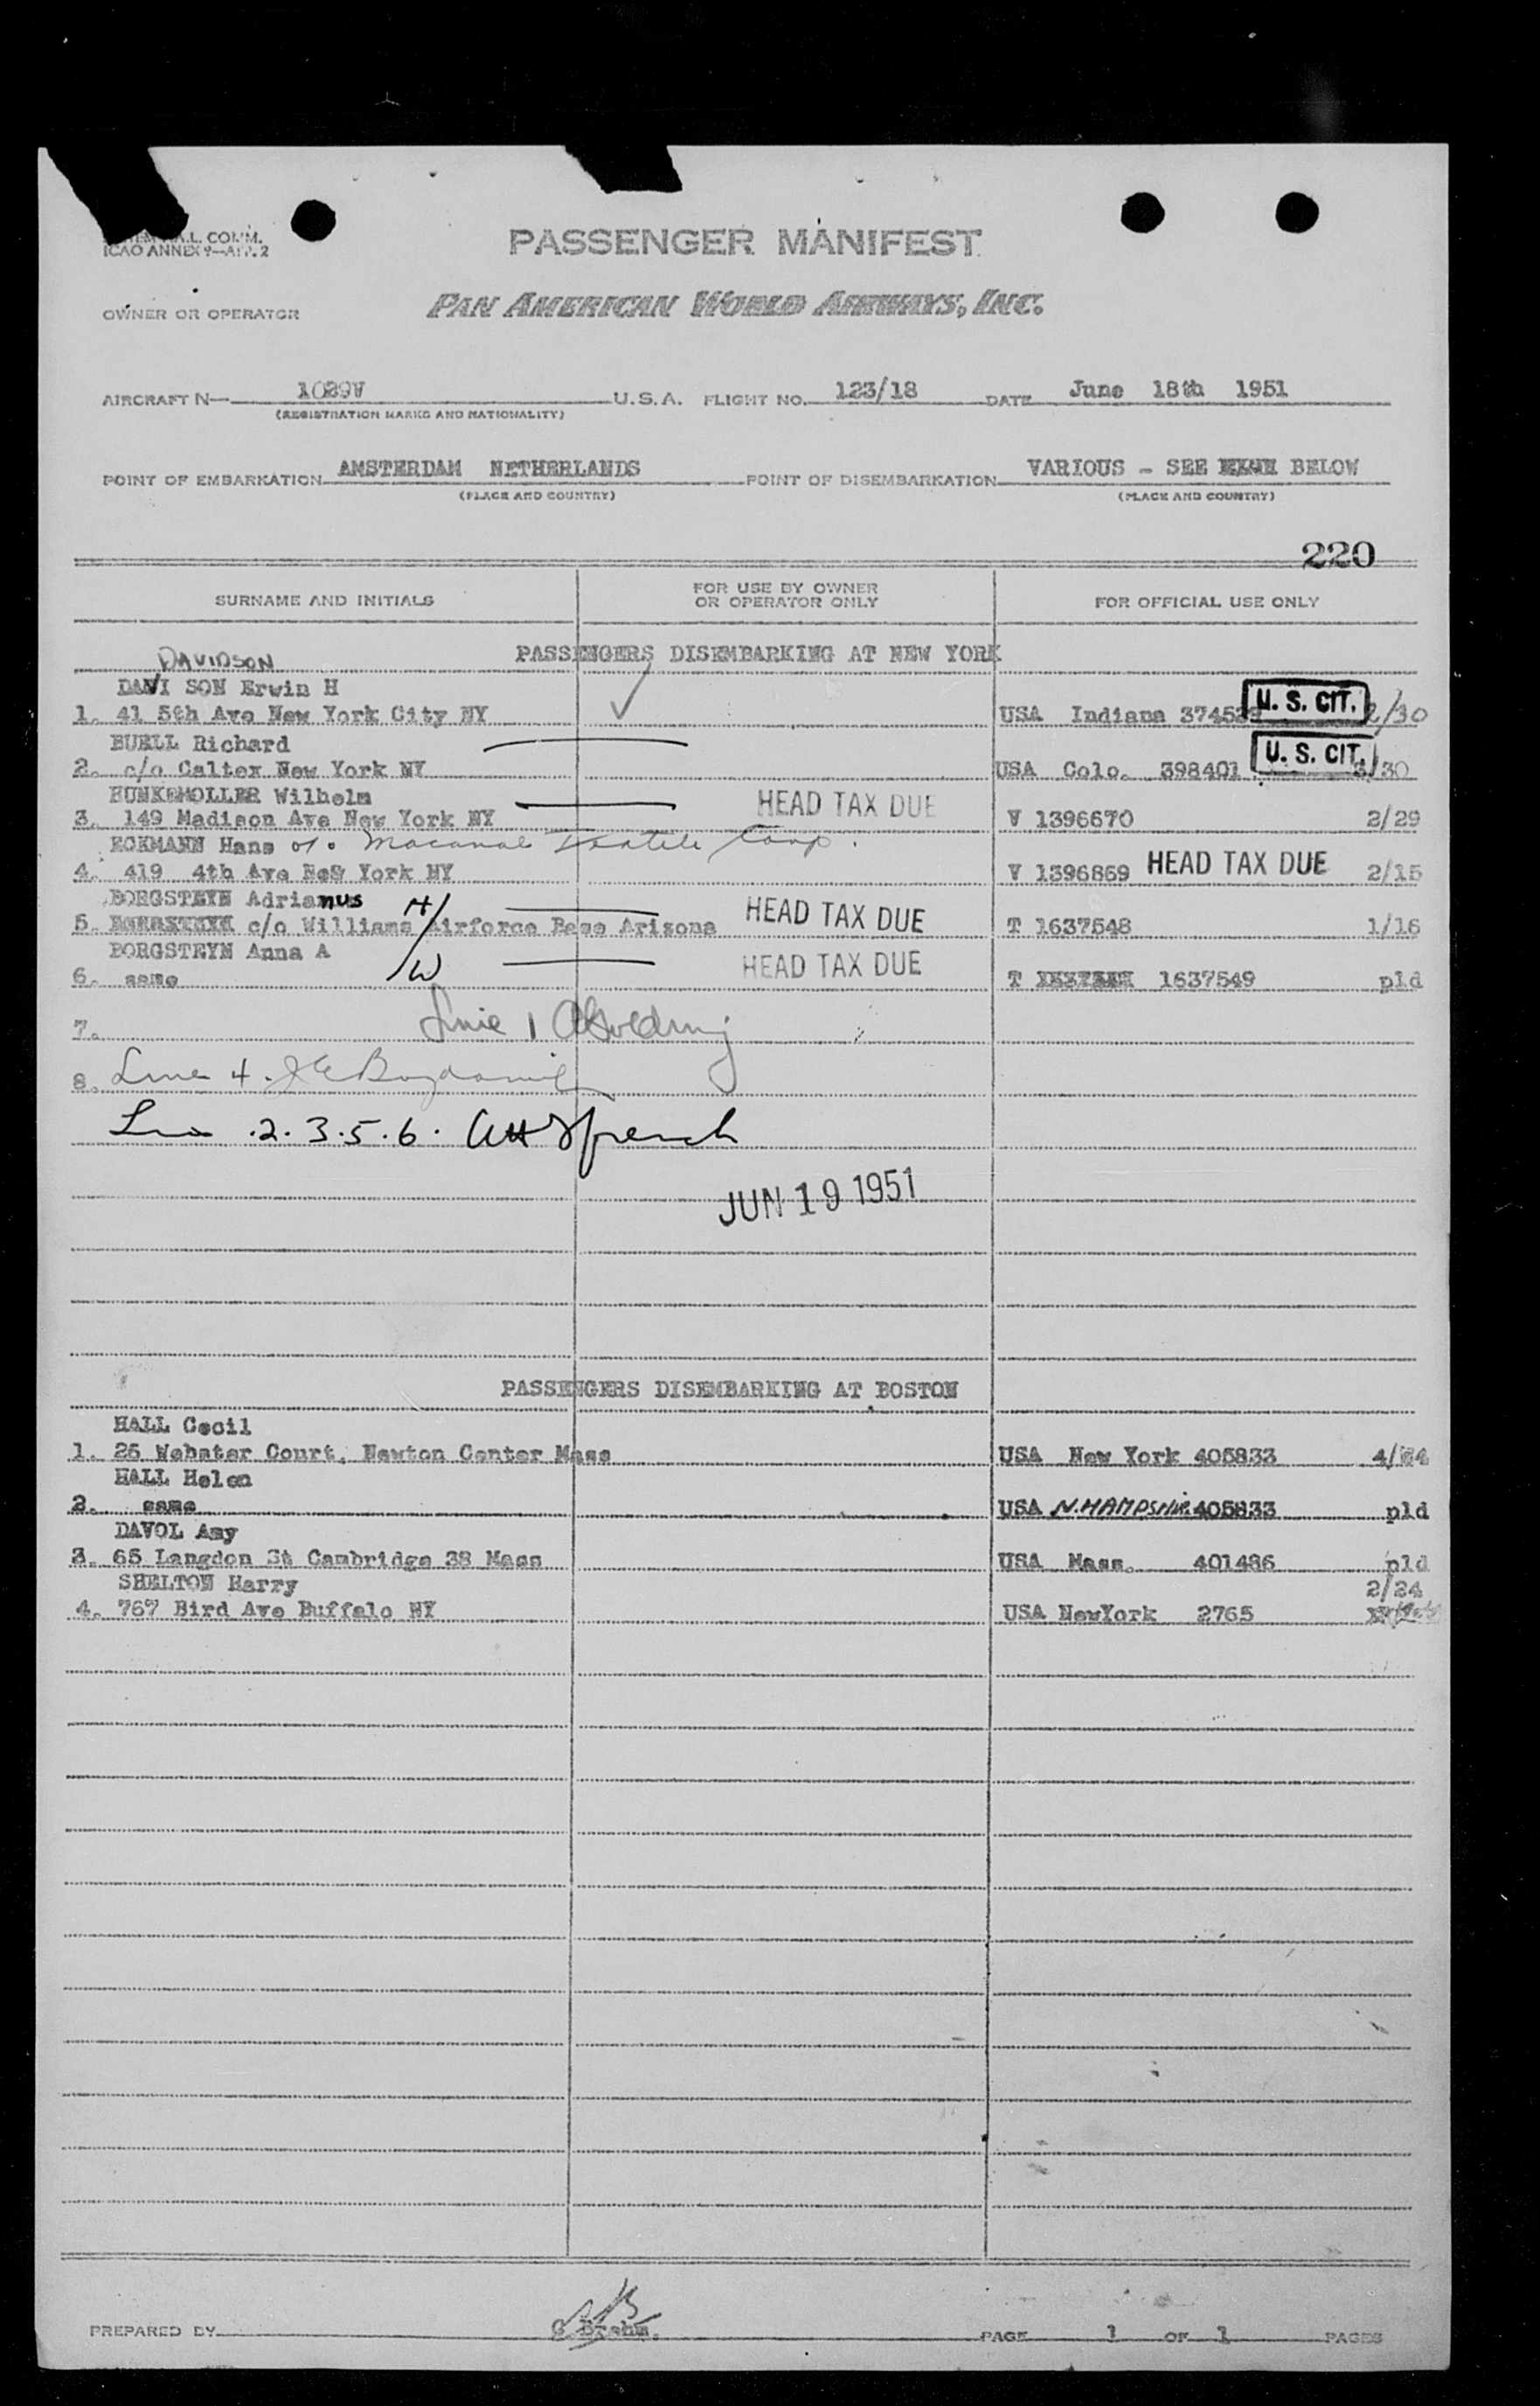 COMM.
ICAO ANNEX 9—APP. 2
PASSENGER MANIFEST
OWNER OR OPERATOR PAN AMERICAN WORLD AIRWAYS, INC.
AIRCRAFT N— 1029V U.S.A. FLIGHT NO. 123/18 DATE June 18th 1951
(REGISTRATION MARKS AND NATIONALITY)
POINT OF EMBARKATION AMSTERDAM NETHERLANDS POINT OF DISEMBARKATION VARIOUS - SEE BELOW
(PLACE AND COUNTRY) (PLACE AND COUNTRY)
220
SURNAME AND INITIALS FOR USE BY OWNER OR OPERATOR ONLY FOR OFFICIAL USE ONLY
PASSENGERS DISEMBARKING AT NEW YORK
DAVIDSON
DAVI SON Erwin H
1. 41 5th Ave New York City NY USA Indiana U. S. CIT. 2/30
BUELL Richard
2. c/o Caltex New York NY USA Colo. 398401 U. S. CIT. 3/30
HUNKEMOLLER Wilhelm HEAD TAX DUE
3. 149 Madison Ave New York NY V 1396670 2/29
ECKMANN Hans Corp.
4. 419 4th Ave New York NY V 1396869 HEAD TAX DUE 2/15
BORGSTEYN Adrianus H/
5. c/o Williams Airforce Base Arizona HEAD TAX DUE T 1637548 1/16
BORGSTEYN Anna A /W
6. same HEAD TAX DUE T 1637549 pld
7. Line 1
8. Line 4.
.2.3.5.6.
JUN 19 1951
PASSENGERS DISEMBARKING AT BOSTON
HALL Cecil
1. 25 Webster Court, Newton Center Mass USA New York 405833
HALL Helen
2. same USA N.HAMPSHIRE 405833 pld
DAVOL Amy
3. 65 Langdon St Cambridge 38 Mass USA Mass. 401486 pld
SHELTON Harry 2/24
4. 767 Bird Ave Buffalo NY USA NewYork 2765
PREPARED BY PAGE 1 OF 1 PAGES